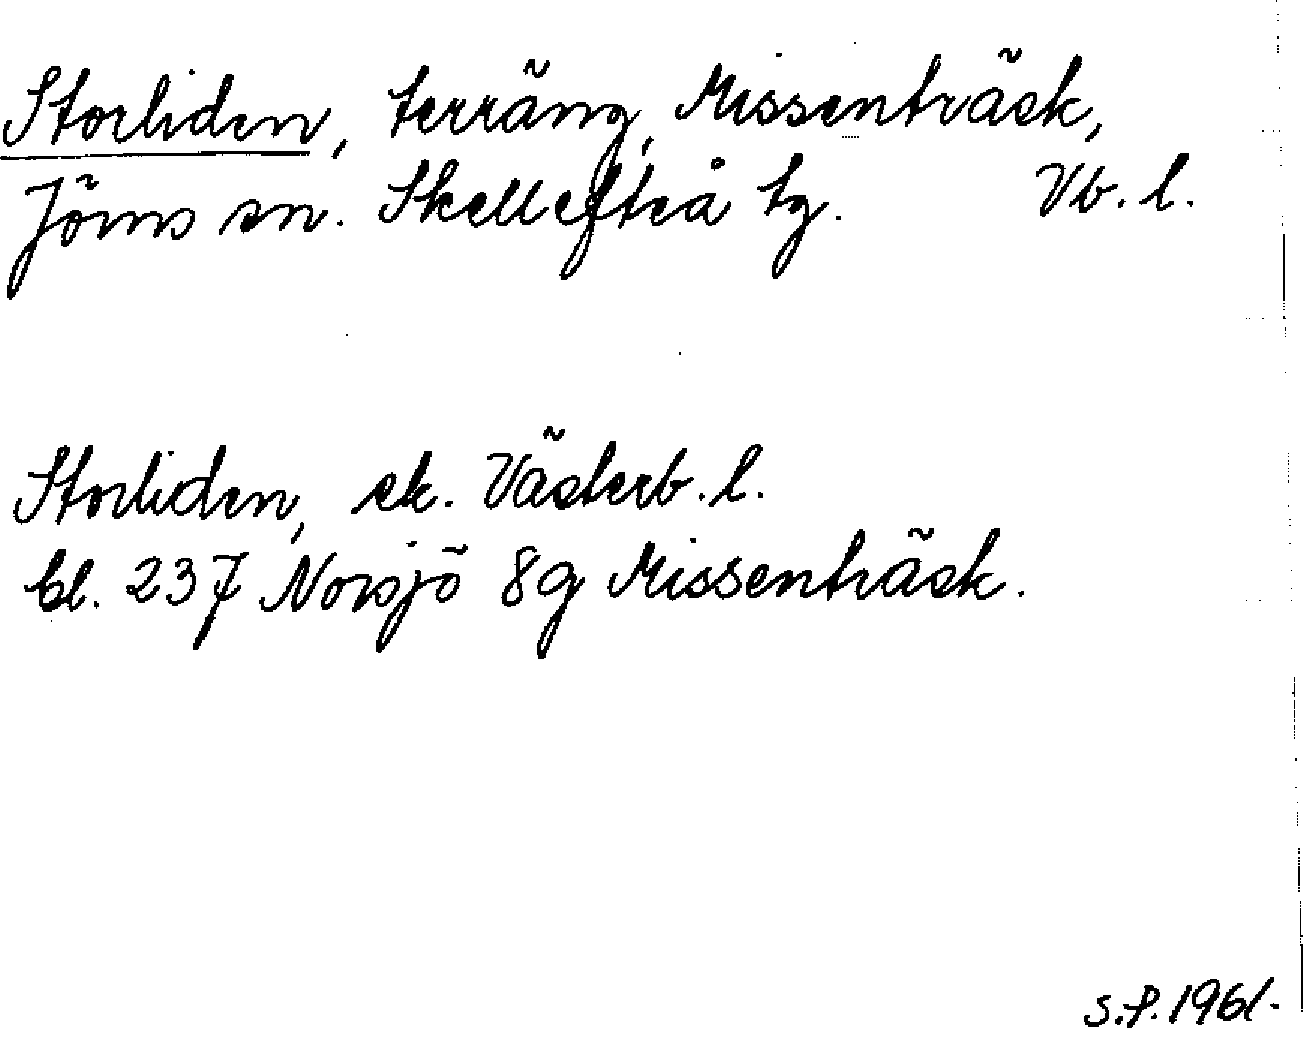 Storliden, terräng, Missenträsk,
Jörns sn. Skellefteå tg. Vb. l.
Storliden, ek. Västerb. l.
bl. 237 Norsjö 8g Missenträsk.
S.P. 1961.